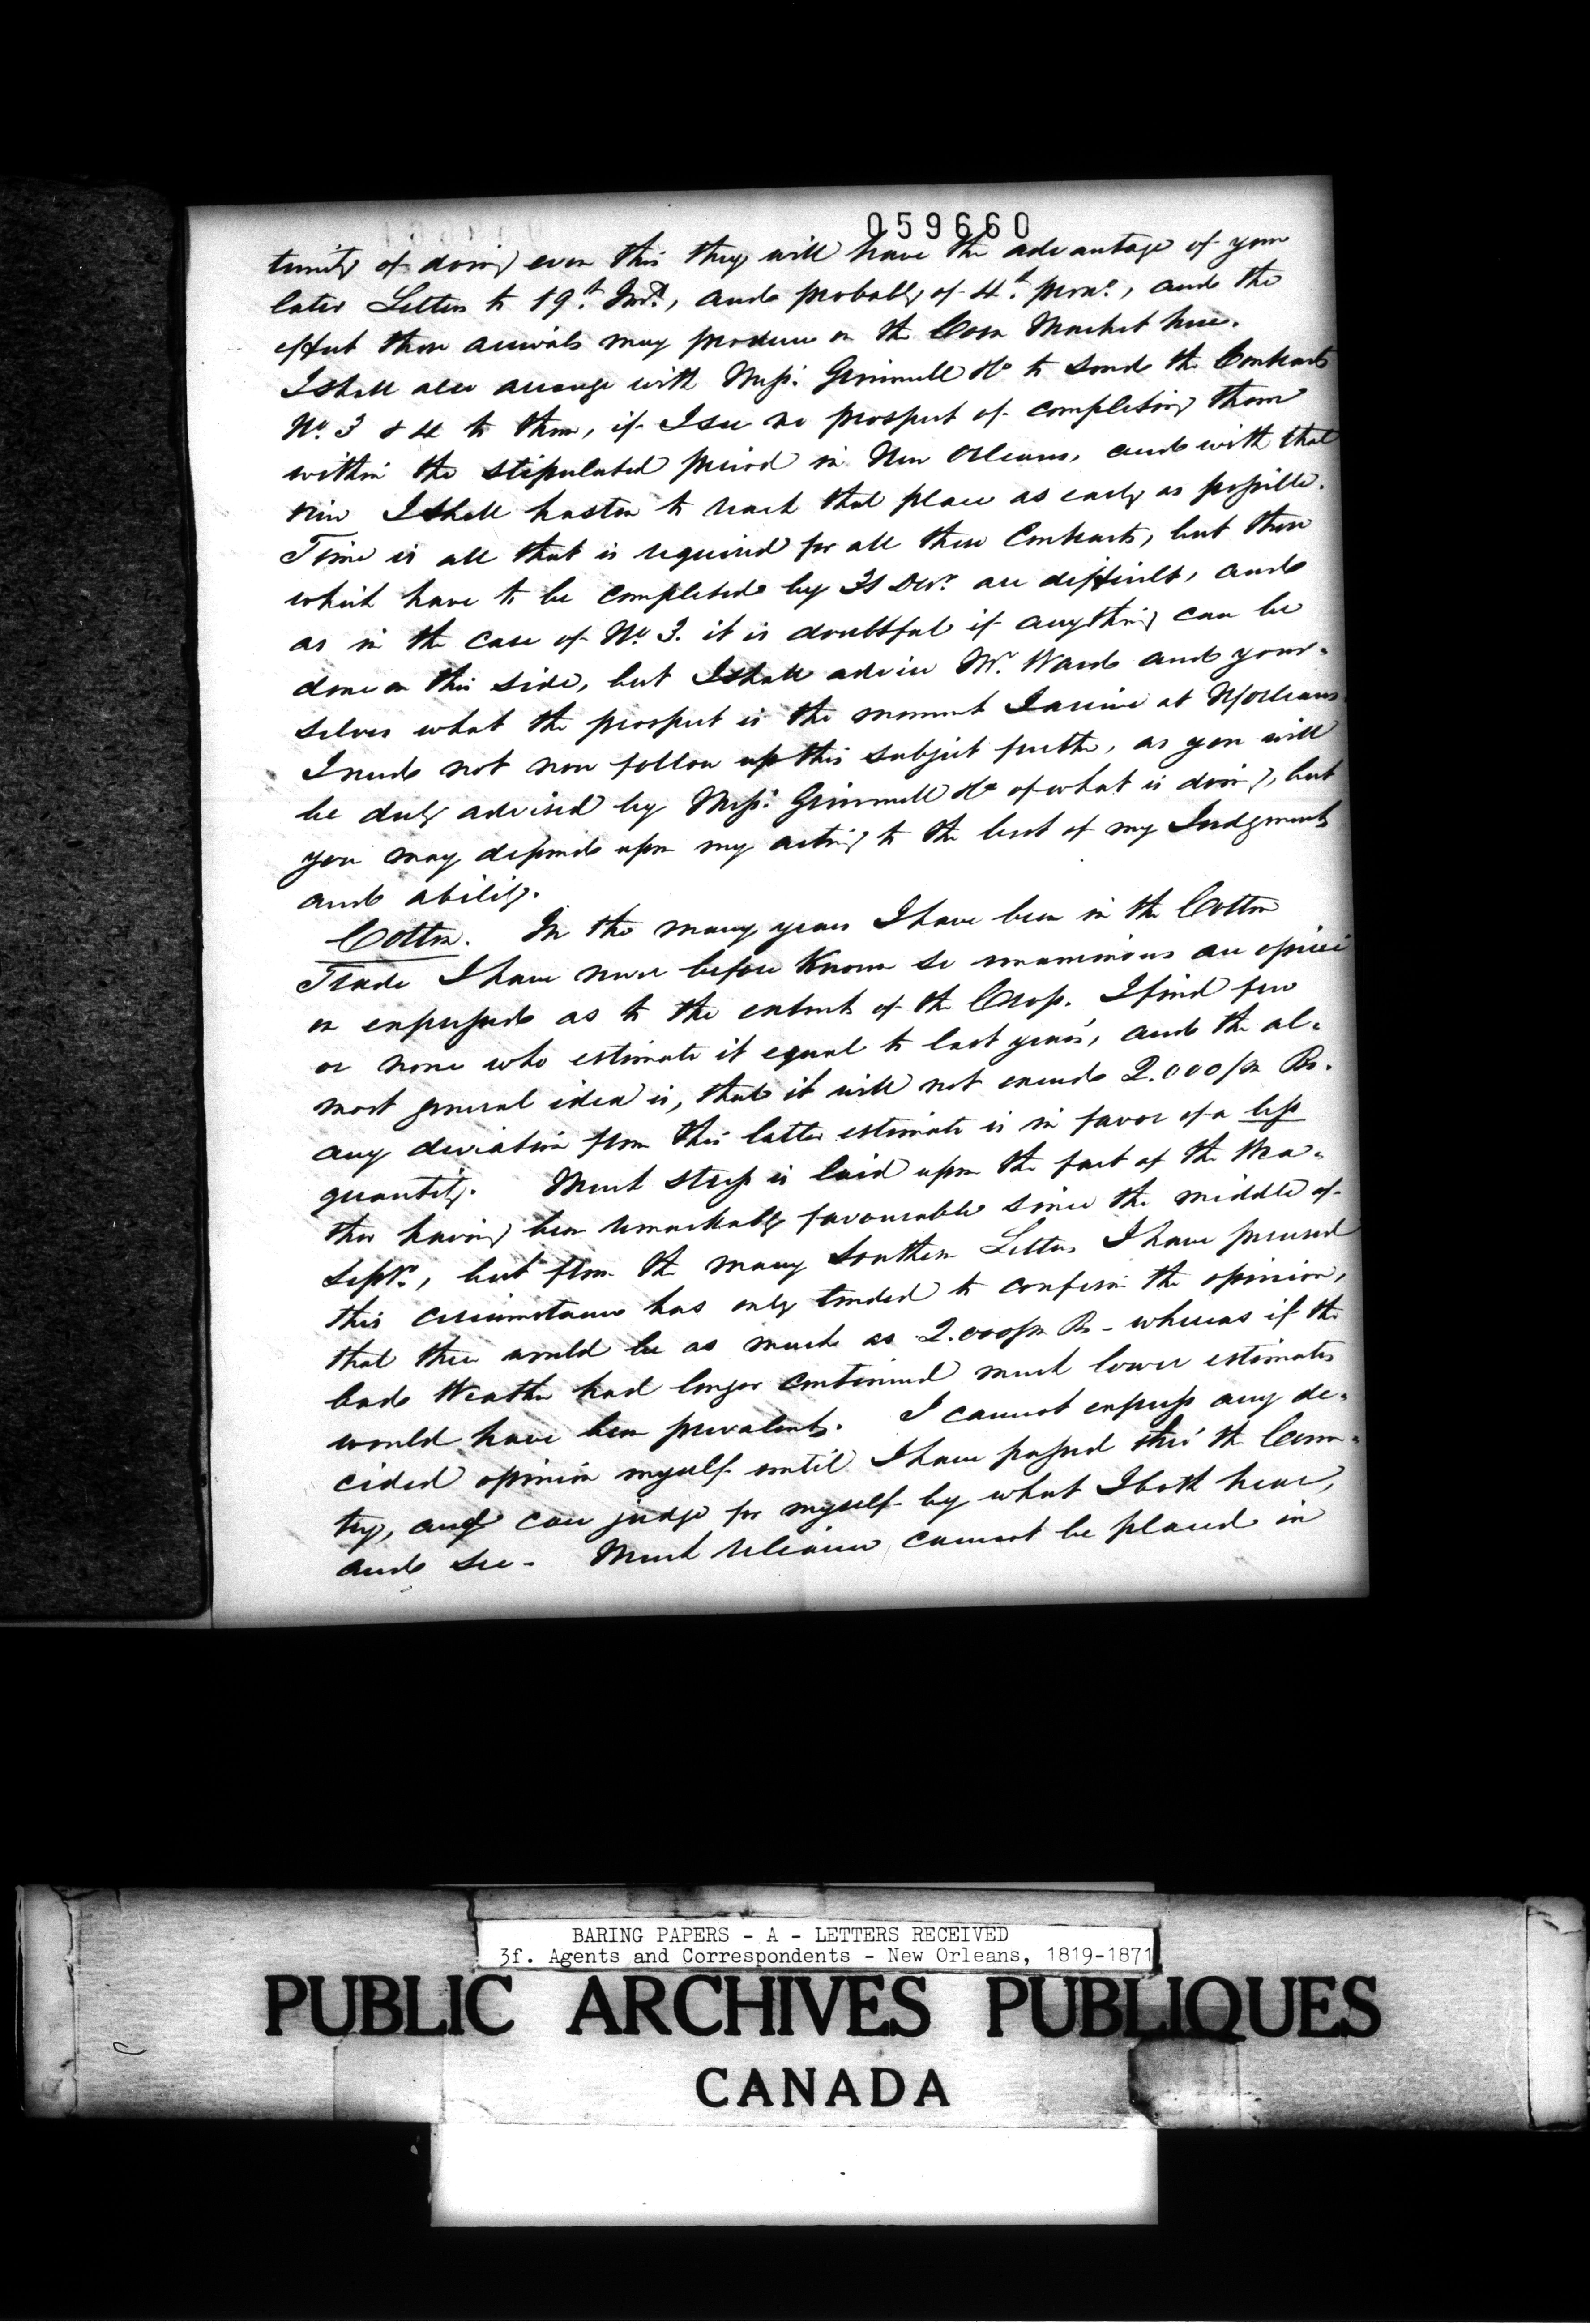 059660
tunity of doing even this they will have the advantage of your
later Letters to 19th Inst., and probably of 4th prox., and the
effect these arrivals may produce on the Corn Market here.
I shall also arrange with Messrs. Grinnell & Co to send the Contracts
No. 3 & 4 to them, if I see no prospect of completing them
within the stipulated period in New Orleans, and with that
view I shall hasten to reach that place as early as possible.
Time is all that is required for all these Contracts, but those
which have to be completed by 31 Decr. are difficult, and
as in the case of No 3. it is doubtful if anything can be
done on this side, but I shall advise Mr. Ward and your-
selves what the prospect is the moment I arrive at N/Orleans.
I need not now follow up this subject further, as you will
be duly advised by Messrs. Grinnell & Co of what is doing, but
you may depend upon my acting to the best of my Judgment
and ability.
Cotton. In the many years I have been in the Cotton
Trade I have never before known so unanimous an opini
on expressed as to the extent of the Crop. I find few
or none who estimate it equal to last year's, and the al-
most general idea is, that it will not exceed 2.000/m Bs.
any deviation from this latter estimate is in favor of a less
quantity. Much stress is laid upon the fact of the Wea-
ther having been remarkably favourable since the middle of
Septr., but from the many Southern Letters I have perused
this circumstance has only tended to confirm the opinion,
that there would be as much as 2.000/m Bs - whereas if the
bad Weather had longer continued much lower estimates
would have been prevalent. I cannot express any de-
cided opinion myself until I have passed thro' the Coun-
try, and can judge for myself by what I both hear,
and see - Much reliance cannot be placed in
BARING PAPERS - A - LETTERS RECEIVED
3f. Agents and Correspondents - New Orleans, 1819-1871
PUBLIC ARCHIVES PUBLIQUES
CANADA